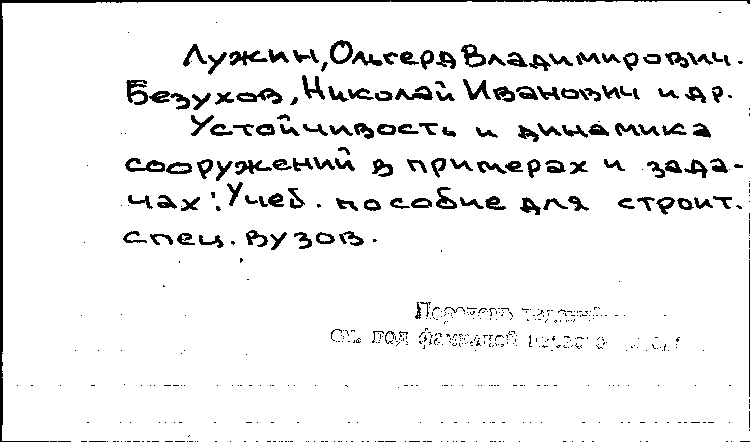 Лужин, Ольгерд Владимирович.
Безухов, Николай Иванович и др.
Устойчивость и динамика
сооружений в примерах и зада-
чах: Учеб. пособие для строит.
спец. вузов.
см. под фамилией